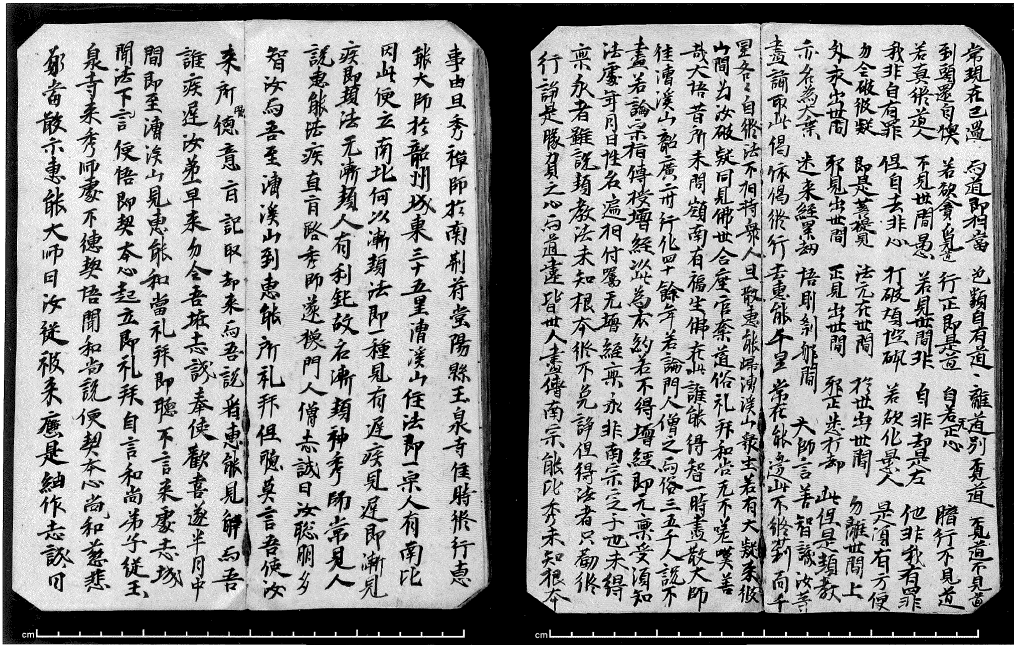 常現在已過 与道即相當 色類自有道 離道別覓道 覓道不見道
到頭還自懊 若欲貪覓道 行正即是道 自若无正心 暗行不見道
若真修道人 不見世間愚 若見世間非 自非却是左 他非我有罪
我非自有罪 但自去非心 打破煩惱碎 若欲化愚人 是須有方便
勿令破彼疑 即是菩提見 法元在世間 於世出世間 勿離世間上
外求出世間 邪見出世間 正見出世間 邪正悉打却 此但是頓教
亦名為大乘 迷來經累劫 悟則剎那間 大師言善智識汝等
盡誦取此偈依偈修行去惠能千里常在能邊此不修對面千
里各各自修法不相待衆人且散惠能歸漕溪山衆生若有大疑來彼
山間為汝破疑同見佛世合座官奈道俗礼拜和尚无不嗟嘆善
哉大悟昔所未問嶺南有福生佛在此誰能得智一時盡散大師
住漕溪山韶廣二州行化四十餘年若論門人僧之与俗三五千人說不
盡若論宗指傳授壇經以此為衣約若不得壇經即无稟受須知
法處年月日性名遍相付囑无壇經稟承非南宗定子也未得
稟承者雖說頓教法未知根本修不免諍但得法者只勸修
行諍是勝負之心与道違背世人盡傳南宗能比秀未知根本
事由且秀禪師於南荊府堂陽縣玉泉寺住時修行惠
能大師於韶州城東三十五里漕溪山住法即一宗人有南比
因此便立南北何以漸頓法即一種見有遲疾見遲即漸見
疾即頓法无漸頓人有利鈍故名漸頓神秀師常見人
說惠能法疾直旨路秀師遂換門人僧志誠曰汝聰明多
智汝与吾至漕溪山到惠能所礼拜但聽莫言吾使汝
來所聽德意旨記取却來与吾說看惠能見解与吾
誰疾遲汝第一早來勿令吾怪志誠奉使歡喜遂半月中
間即至漕溪山見惠能和當礼拜即聽不言來處志城
聞法下言便悟即契本心起立即礼拜自言和尚弟子從玉
泉寺來秀師處不德契悟聞和尚說便契本心尚和慈悲
願當散示惠能大師曰汝從彼來應是紬作志誠曰
cm
cm